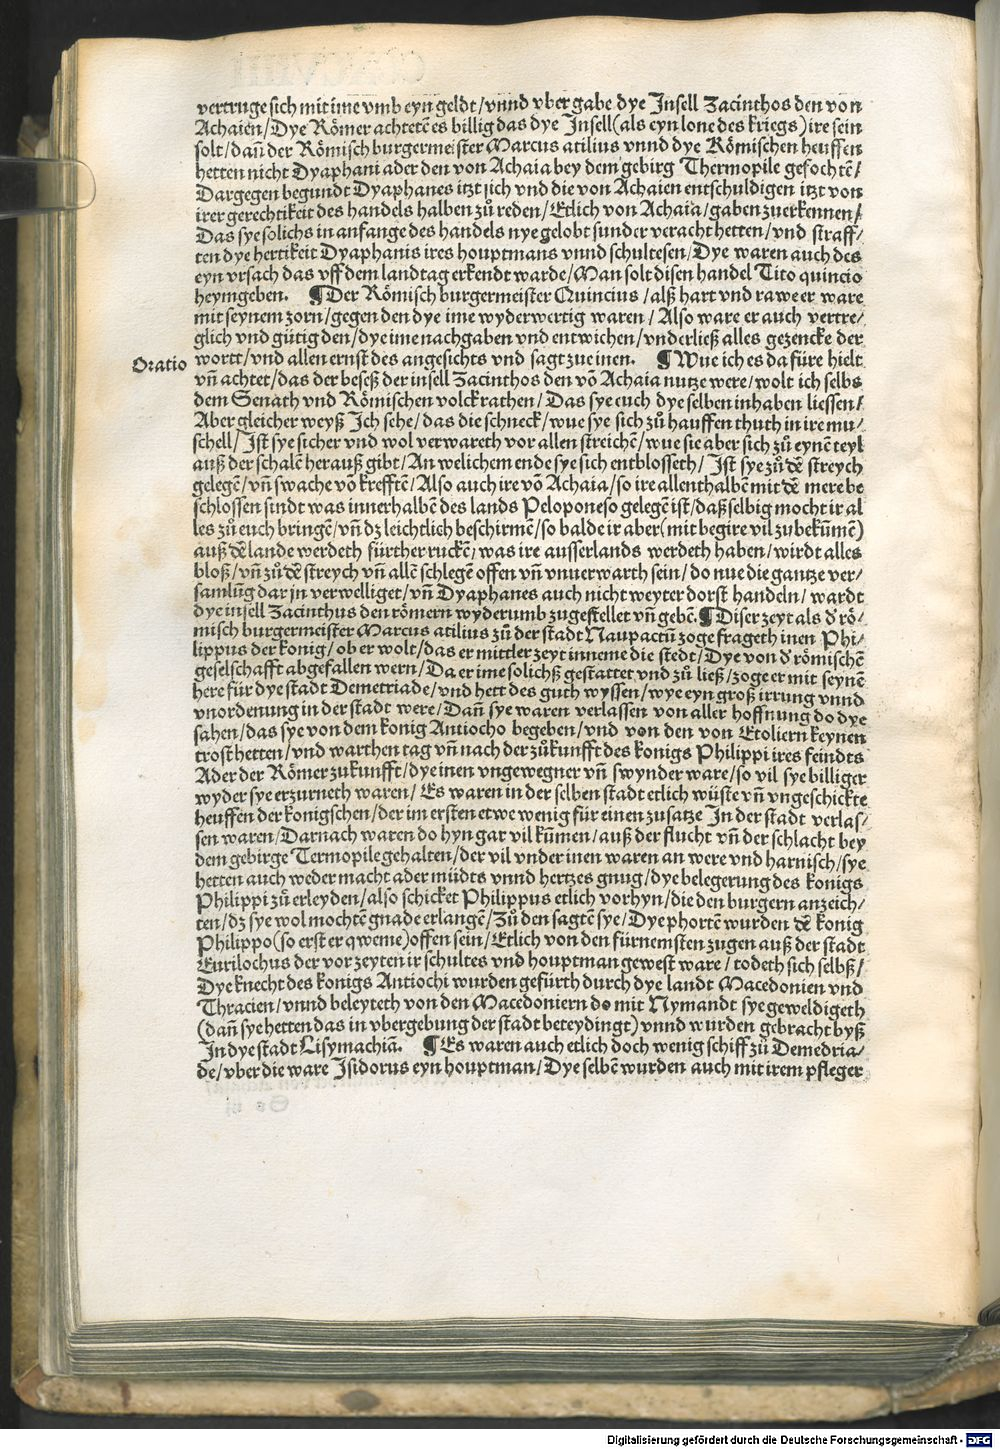 vertruge sich mit ime vmb eyn geldt/vnnd vber gabe dye Insell Zacinthos den von
Achaien/Dye Römer achtetē es billig das dye Insell(als eyn lone des kriegs)ire sein
solt/dañ der Römisch burgermeister Marcus atilius vnnd dye Römischen heuffen
hetten nicht Dyaphani ader den von Achaia bey dem gebirg Thermopile gefochtē/
Dargegen begundt Dyaphanes itzt sich vnd die von Achaien entschuldigen itzt von
irer gerechtikeit des handels halben zů reden/Etlich von Achaia/gaben zuerkennen/
Das sye solichs in anfange des handels nye gelobt sunder veracht hetten/vnd straff/
ten dye hertikeit Dyaphanis ires houptmans vnnd schultesen/Dye waren auch des
eyn vrsach das vff dem landtag erkendt warde/Man solt disen handel Tito quincio
heymgeben. ¶Der Römisch burgermeister Quincius/alß hart vnd rawe er ware
mit seynem zorn/gegen den dye ime wyderwertig waren/Also ware er auch vertre/
glich vnd gütig den/dye ime nachgaben vnd entwichen/vnderließ alles gezencke der
wortt/vnd allen ernst des angesichts vnd sagt zue inen. ¶Wue ich es da füre hielt
Oratio
vñ achtet/das der beseß der insell Zacinthos den vō Achaia nutze were/wolt ich selbs
dem Senath vnd Römischen volck rathen/Das sye euch dye selben inhaben liessen/
Aber gleicher weyß Ich sehe/das die schneck/wue sye sich zů hauffen thuth in ire mu/
schell/Ist sye sicher vnd wol verwareth vor allen streichē/wue sie aber sich zů eynē teyl
auß der schalē herauß gibt/An welichem ende sye sich entblosseth/Ist sye zů dē streych
gelegē/vñ swache vō krefftē/Also auch ire vō Achaia/so ire allenthalbē mit dē mere be
schlossen sindt was innerhalbē des lands Peloponeso gelegē ist/daß selbig mocht ir al
les zů euch bringē/vñ dz leichtlich beschirmē/so balde ir aber(mit begire vil zubekūmē)
auß dē lande werdeth fürther ruckē/was ire ausserlands werdeth haben/wirdt alles
bloß/vñ zů dē streych vñ allē schlegē offen vñ vnuerwarth sein/do nue die gantze ver/
samlūg dar in verwelliget/vñ Dyaphanes auch nicht weyter dorst handeln/wardt
dye insell Zacinthus den römern wyderumb zugestellet vñ gebē.¶Diser zeyt als ď rö/
misch burgermeister Marcus atilius zů der stadt Naupactū zoge frageth inen Phi/
lippus der konig/ob er wolt/das er mittler zeyt inneme die stedt/Dye von ď römischē
geselschafft abgefallen wern/Da er ime solichß gestattet vnd zů ließ/zoge er mit seynē
here für dye stadt Demetriade/vnd hett des guth wyssen/wye eyn groß irrung vnnd
vnordenung in der stadt were/Dañ sye waren verlassen von aller hoffnung do dye
sahen/das sye von dem konig Antiocho begeben/vnd von den von Etoliern keynen
trost hetten/vnd warthen tag vñ nach der zůkunfft des konigs Philippi ires feindts
Ader der Römer zukunfft/dye inen vngewegner vñ swynder ware/so vil sye billiger
wyder sye erzurneth waren/Es waren in der selben stadt etlich wüste vñ vngeschickte
heuffen der konigschen/der im ersten etwe wenig für einen zusatze In der stadt verlas/
sen waren/Darnach waren do hyn gar vil kūmen/auß der flucht vñ der schlacht bey
dem gebirge Termopile gehalten/der vil vnder inen waren an were vnd harnisch/sye
hetten auch weder macht ader müdts vnnd hertzes gnug/dye belegerung des konigs
Philippi zů erleyden/also schicket Philippus etlich vorhyn/die den burgern anzeich/
ten/dz sye wol mochtē gnade erlangē/Zů den sagtē sye/Dye phortē wurden dē konig
Philippo(so erst er qweme)offen sein/Etlich von den fürnemsten zugen auß der stadt
Eurilochus der vor zeyten ir schultes vnd houptman gewest ware/todeth sich selbß/
Dye knecht des konigs Antiochi wurden gefürth durch dye landt Macedonien vnd
Thracien/vnnd beleyteth von den Macedoniern do mit Nymandt sye geweldigeth
(dañ sye hetten das in vbergebung der stadt beteydingt)vnnd wurden gebracht byß
In dye stadt Lisymachiā. ¶Es waren auch etlich doch wenig schiff zů Demedria/
de/vber die ware Isidorus eyn houptman/Dye selbē wurden auch mit irem pfleger
Digitalisierung gefördert durch die Deutsche Forschungsgemeinschaft - DFG